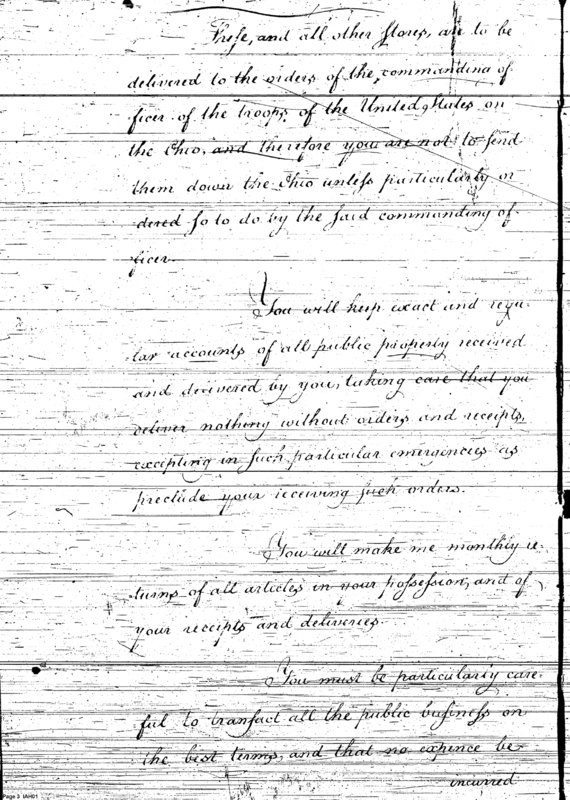 These, and all other Stores, are to be
delivered to the orders of the commanding of
ficer of the troops of the United States on
the Ohio, and therefore you are not to send
them down the Ohio unless particularly or
dered so to do by the said commanding of-
ficer.
You will keep exact and regu-
lar accounts of all public property received
and delivered by you, taking care that you
deliver nothing without orders and receipts,
excepting in such particular emergencies as
preclude your receiving such orders.
You will make me monthly re-
turns of all articles in your possession, and of
your receipts and deliveries.
You must be particularly care-
ful to transact all the public business on
the best terms, and that no expence be
incurred
Page 3 IAH01